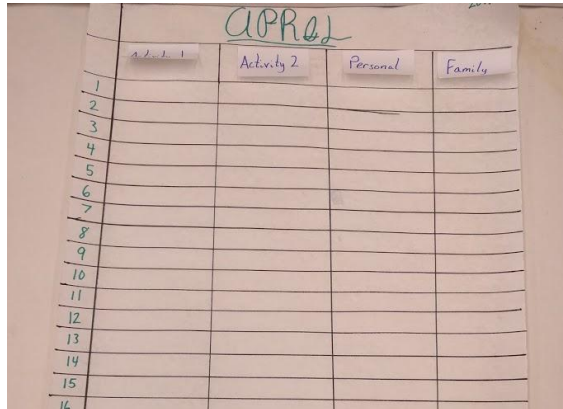 APRIL
Activity 2 Personal Family
1
2
3
4
5
6
7
8
9
10
11
12
13
14
15
16